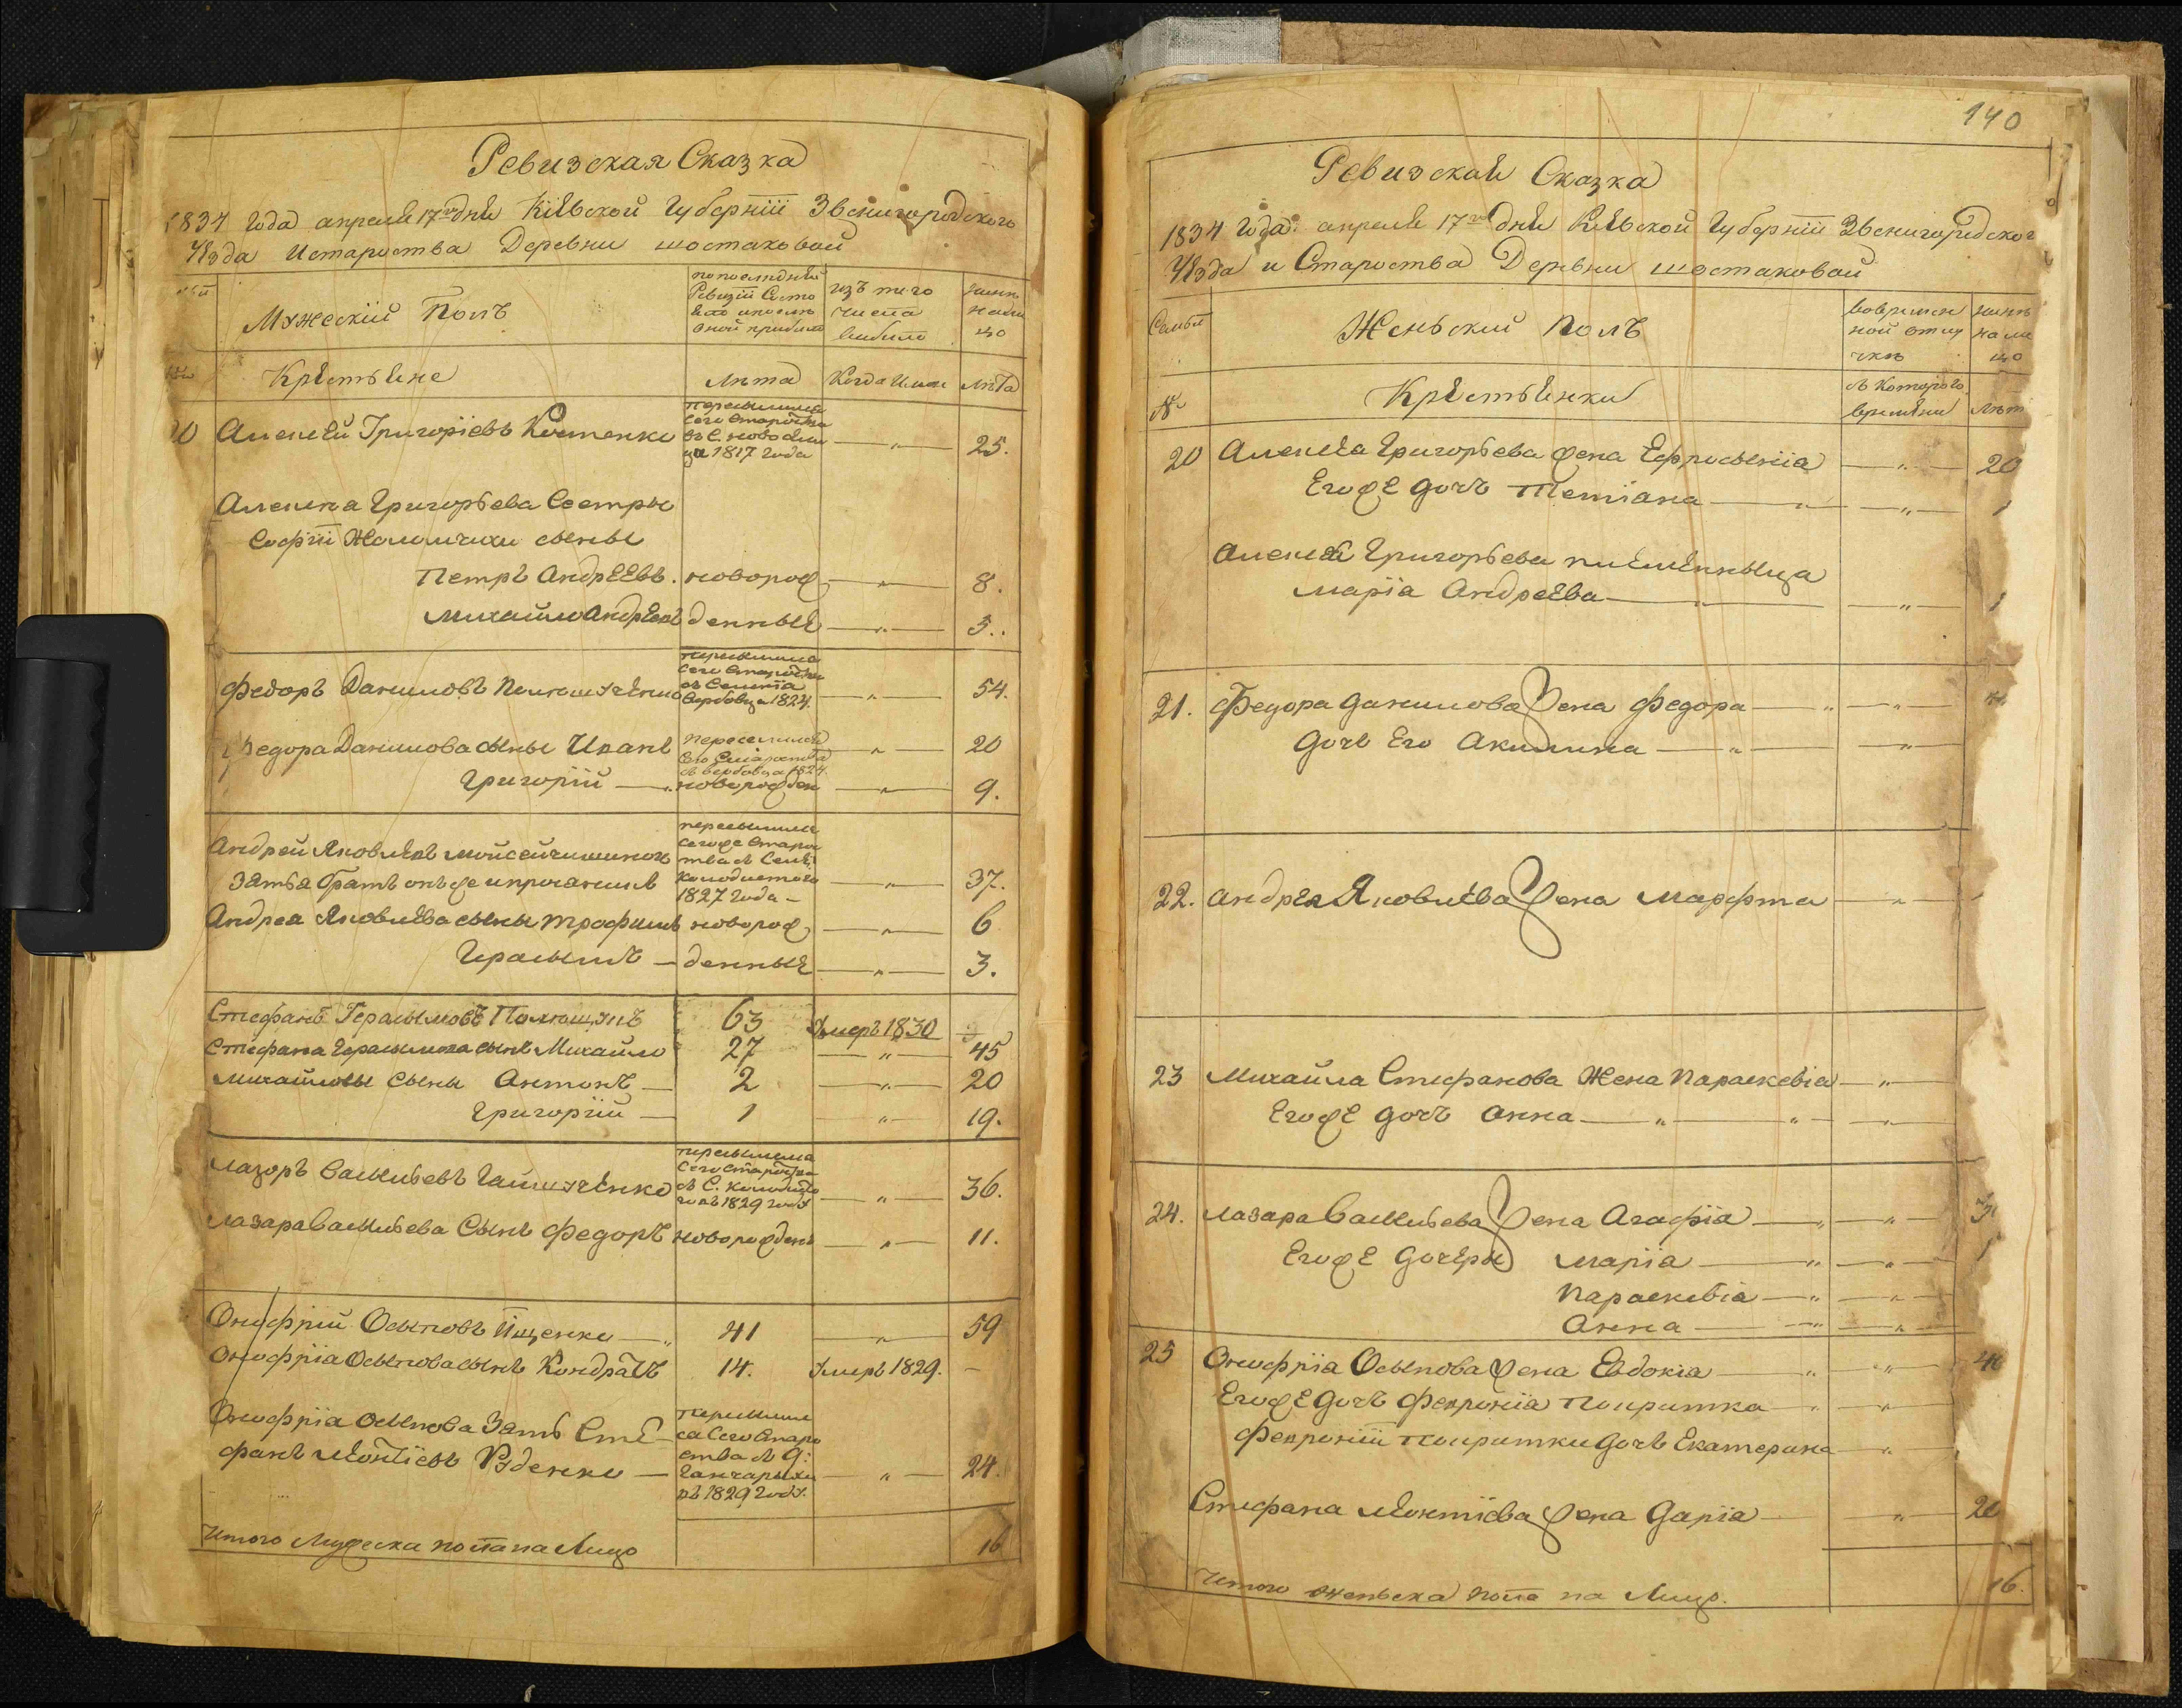 Ревизская Сказка
1834 года апреля 17го дня Кіевской Губерніи Звенигородского
Уезда Истароства Деревни шостаковой
Мужескій Полъ
попоследней Ревизіи Состо
изъ того числа выбыло
ныне налицо
Крестьяне
Лета
Когда Именно
Лета
20 Алексей Григоріевъ Костенко
переселился Сего Староства 1817 года
— „ —
25.
Алексея Григорьева Сестры
Софіи сыны
Петръ Андреевъ. новорож — „ — 8.
Михайло Андреевъ денные — „ — 5.
Федоръ Даниловъ
Сего Староства съ Селенія Вербовца 1824.
— „ — 54.
Федора Данилова сыны Иванъ
переселился Сего Староства съ вербовца 1824.
— „ — 20
Григорій — новорожден — „ — 9.
Андрей Яковлевъ
переселился Сегоже Староства съ Селенія Колодистого 1827 года —
— „ — 37.
Андрея Яковлева сыны Трофимъ новорож — „ — 6
Герасымъ — денные — „ — 3.
Стефанъ Герасымовъ 63 Умеръ 1830 —
Стефана Герасымова сынъ Михайло 27 — „ — 45
Михайловы Сыны Антонъ — 2 — „ — 20
Григорій — 1 — „ — 19.
Лазоръ Васильевъ
переселился Сего Староства съ С. 1829 году
— „ — 36.
Лазара Васильева Сынъ Федоръ новорожденъ — „ — 11.
Онуфрій Осыповъ Ищенко — „ 41 — „ — 59
Онуфрія Осыпова сынъ Кондратъ 14. Умеръ 1829. —
Онуфрія Осыпова Зять Сте-
фанъ Леонтіевъ Руденко —
переселился Сего Староства съ Д: Ганчарыхи въ 1829 году.
— „ — 24.
Итого Мужеска пола на Лицо 16
140
Ревизская Сказка
1834 года апреля 17го дня Кіевской Губерніи Звенигородског
Уезда и Староства Деревни шостаковой
Семьи
Женьскій Полъ
вовременной отлучке
ныне налицо
№
Крестьянки
съ Которого времени
Лет
20 Алексея Григорьева жена Ефросынія — „ — 20
Егоже дочь Тетіана — „ — 1
Алексея Григорьева племянныца
Марія Андреева — „ — 1
21. Федора Данилова Жена Федора — „ —
Дочь Его Акилина — „ —
22. Андрея Яковлева Жена Марфта — „ —
23 Михайла Стефанова Жена Параскевіа — „ —
Егоже дочь Анна — „ —
24. Лазара Васильева Жена Агафіа — „ —
Егоже Дочеры Маріа — „ —
Параскевіа — „ —
Анна — „ —
25 Онуфріа Осыпова Жена Евдокіа — „ —
Егоже Дочь Февроніа Покритка — „ —
Февроніи Покритки Дочь Екатерина — „ —
Стефана Леонтіева Жена Даріа — „ — 20
Итого женьска пола на Лицо. 16.